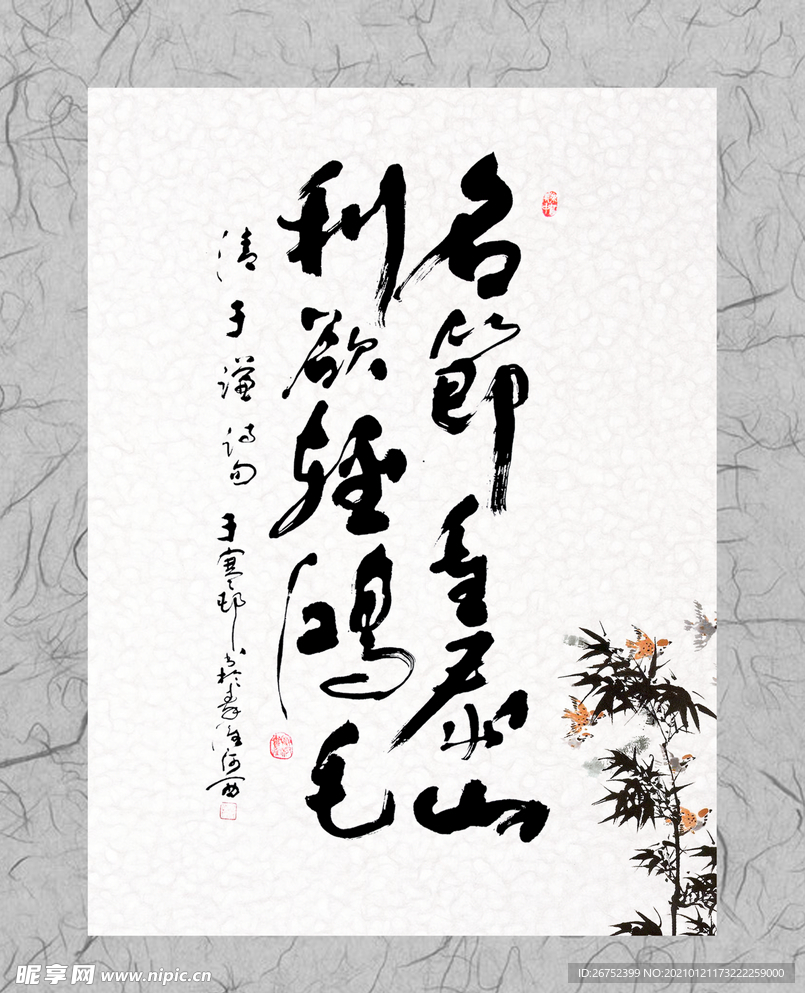 名節重泰山
利欲輕鴻毛
清于謙詩句
昵享网 www.nipic.cn
ID:26752399 NO:20210121173222259000